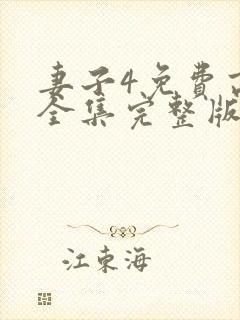 妻子4免费
全集完整版
江东海